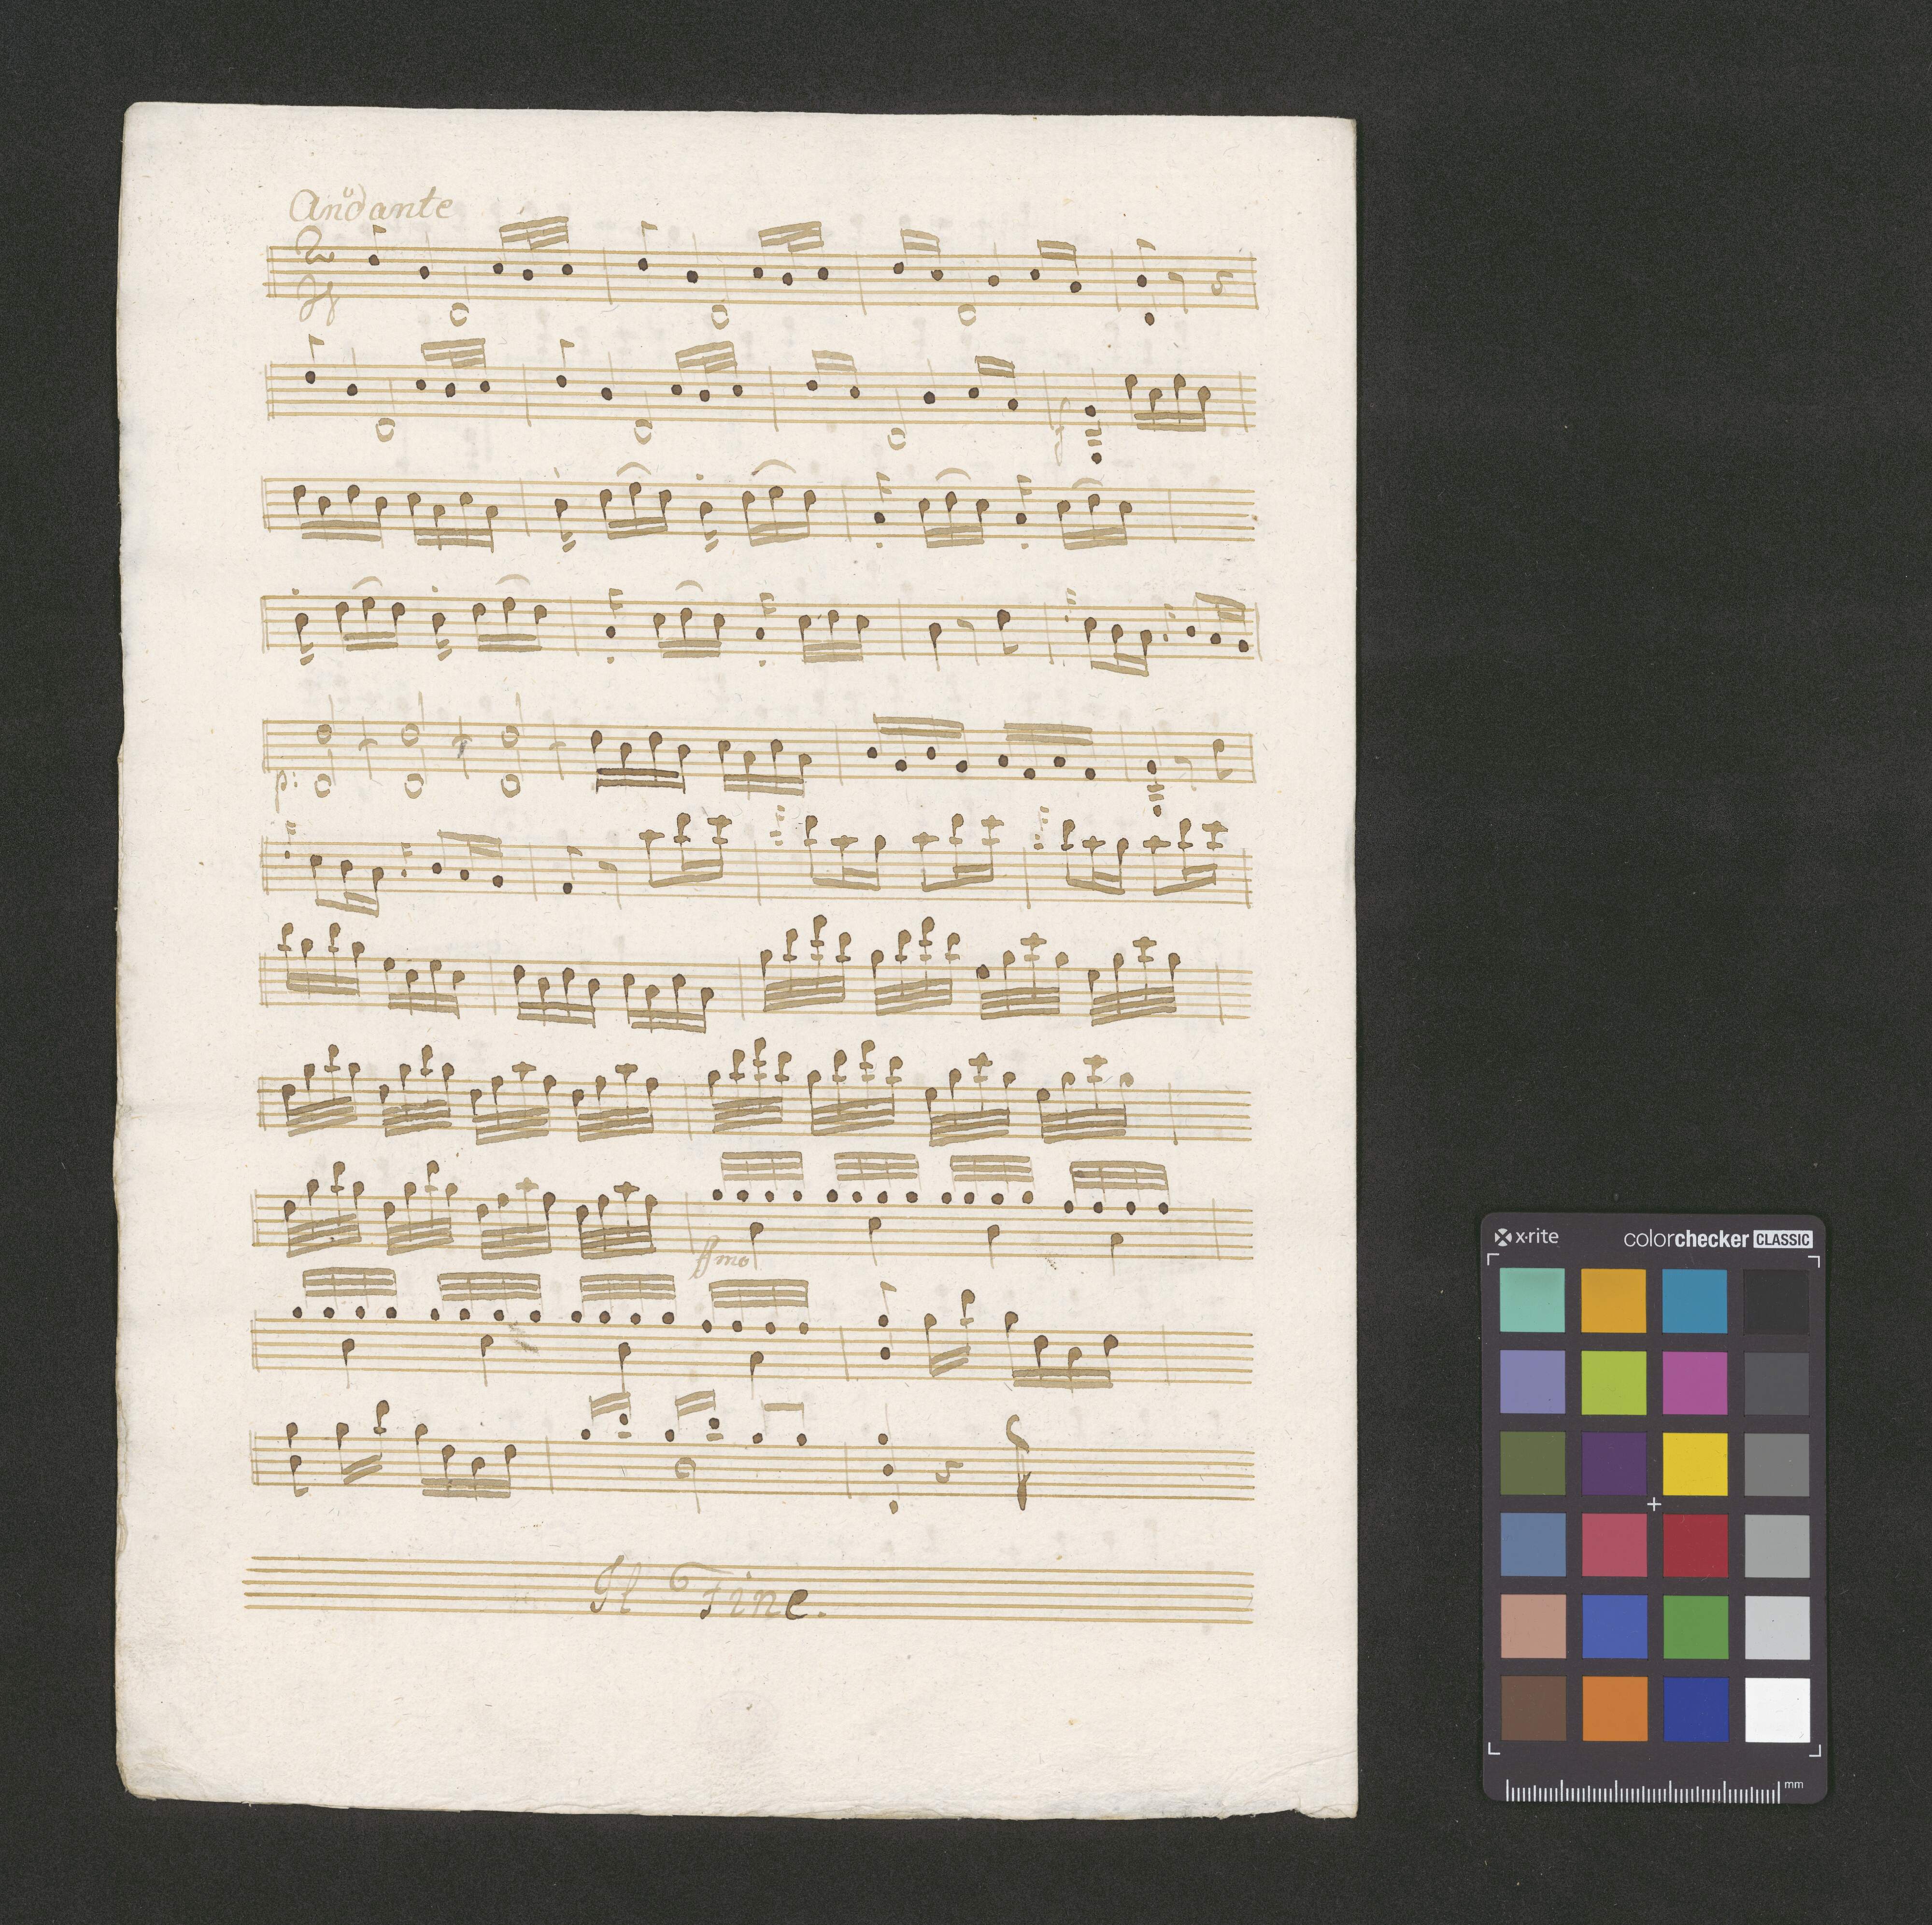 Andante
2
ff
f
p:
ffmo
Il Fine.
x-rite colorchecker CLASSIC
mm